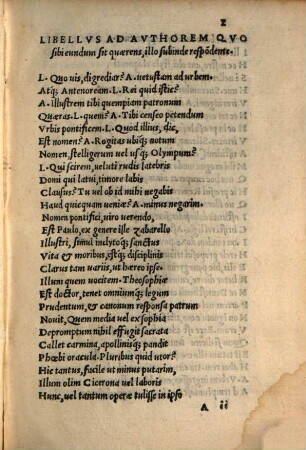 2
LIBELLVS AD AVTHOREM QVO
sibi eundum sit quærens, illo subinde respōdente.
L. Quo uis, digrediar? A. uetustam ad urbem.
Atq; Antenoream. L. Rei quid istic?
A. Illustrem tibi quempiam patronum
Quæras. L. quem? A. Tibi censeo petendum
Vrbis pontificem. L. Quod illius, dic,
Est nomen? A. Rogitas ubiq; notum
Nomen stelligerum uel usq; Olympum?
L. Qui scirem, ueluti rudis latebris
Domi qui latui, timore labis
Clausus? Tu uel ob id mihi negabis
Haud quicquam ueniæ? A. minus negarim.
Nomen pontifici, uiro uerendo,
Est Paulo, ex genere isse zabarello
Illustri, simul inclytoq; sanctus
Vita & moribus, estq; disciplinis
Clarus tam uarijs, ut hæreo ipse.
Illum quem uocitem. Theosophiæ
Est doctor, tenet omnium q; legum
Prudentum, & canonum responsa patrum
Nouit, Quem media uel ex sophia
Depromptum nihil effugit sacrata
Callet carmina, apollinisq; pandit
Phœbi oracula. Pluribus quid utor?
Hic tantus, facile ut minus putarim,
Illum olim Cicerona uel laboris
Hunc, uel tantum operæ tulisse in ipso
A ii